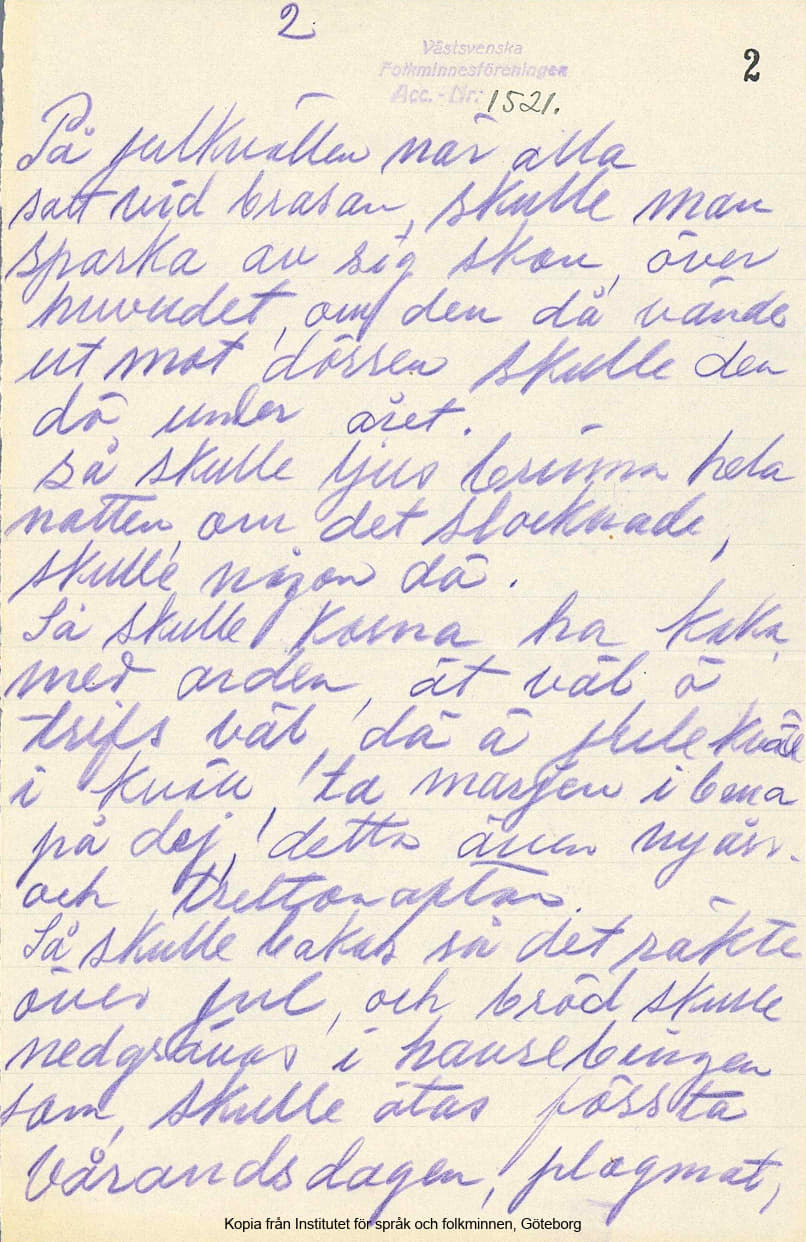 2
2
Västsvenska
Folkminnesföreningen
Acc. - Nr: 1521.
På julkvällen när alla
satt vid brasan, skulle man
sparka av sig skon, över
huvudet, om den då vände
ut mot dörren skulle den
dö under året.
Så skulle ljus brinna hela
natten, om det slocknade,
skulle någon dö.
Så skulle korna ha kaka,
med orden, ät väl ö
trifs väl, dä ä julekväll
i kväll, ta margen i bena
på dej, detta även nyårs-
och trettonaptan.
Så skulle bakas så det räkte
över jul, och bröd skulle
nedgrävas i havrebingen
som, skulle ätas första
vårandsdagen, plogmat,
Kopia från Institutet för språk och folkminnen, Göteborg